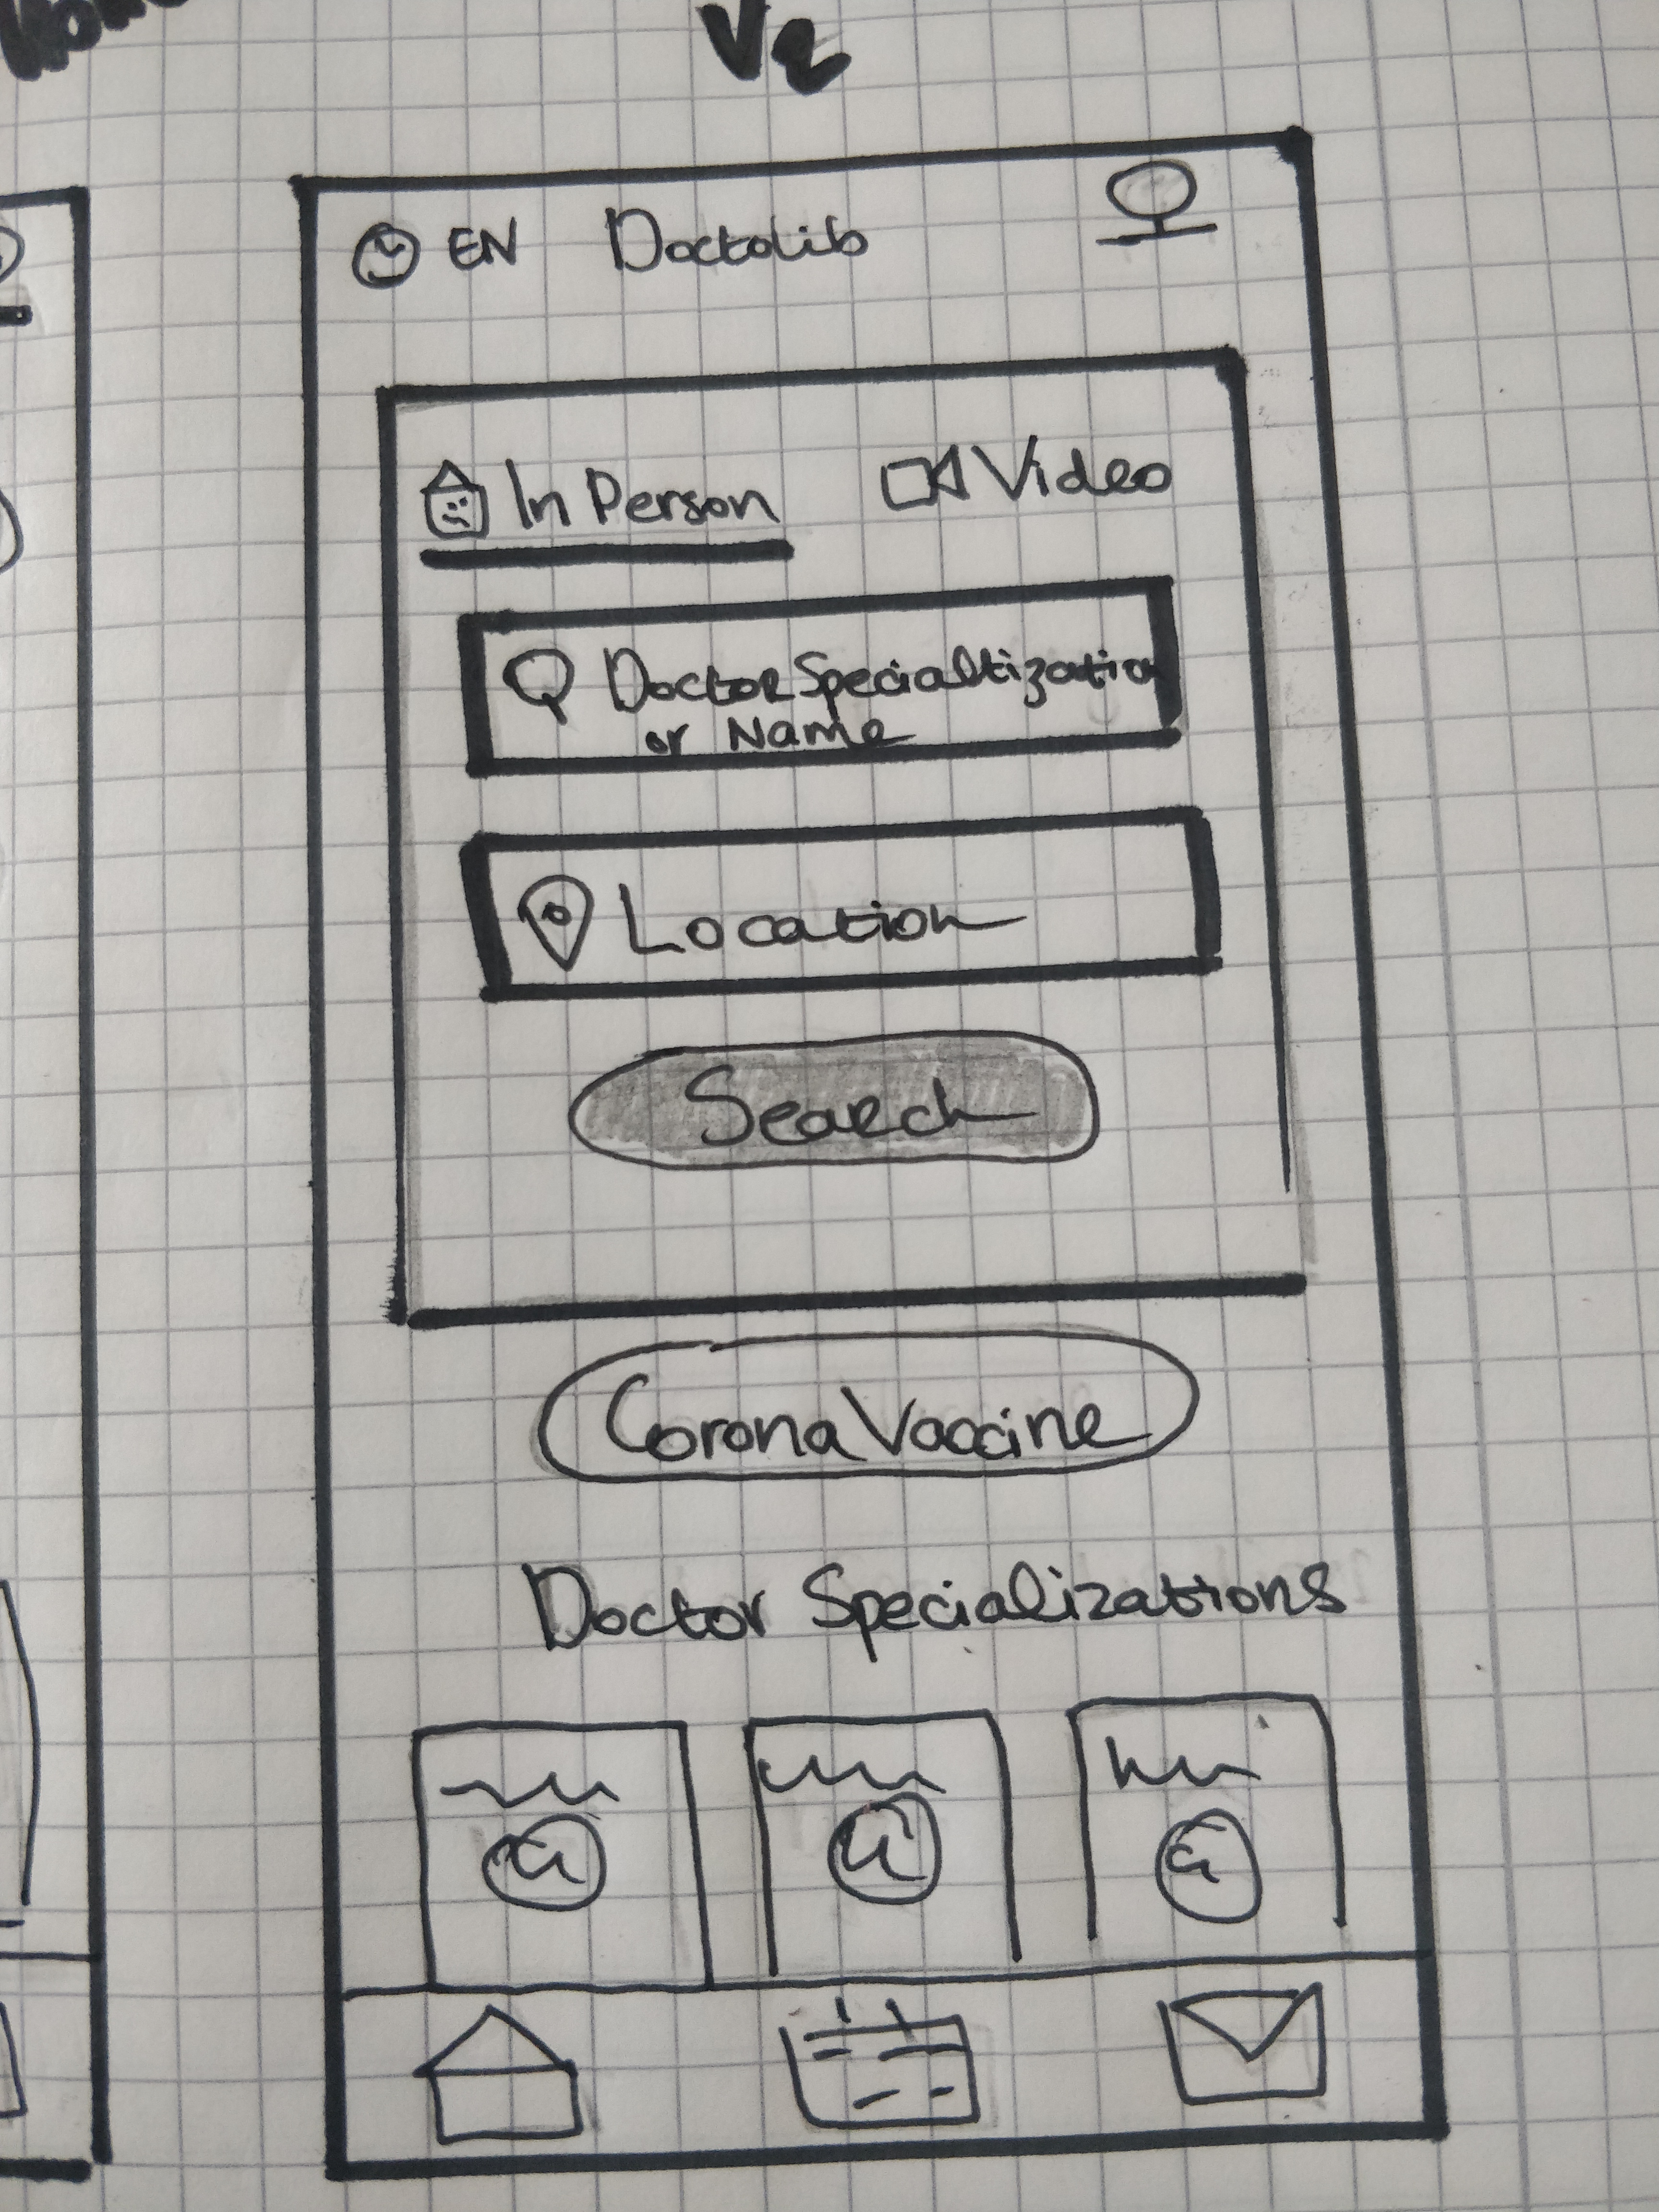 V2
EN Doctolib
In Person Video
Doctor Specialtization
or Name
Location
Search
Corona Vaccine
Doctor Specializations